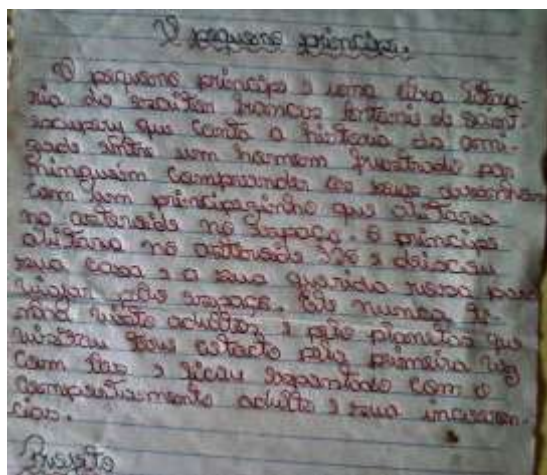 O pequeno príncipe.
O pequeno príncipe é uma obra litera-
ria do escritor francos Antonie de Saint-
Exupery que conta a historia da ami-
zade entre um homem frustrado por
ninguém compreender os seus desenhos
com um principezinho que abitava
no asteroide no espaço. O príncipe
abitava no asteroide 325 e deixou
sua casa e a sua querida rosa para
viajar pelo espaço. Ele nunca ti-
nha visto adultos e pelo planetas que
visitou teve contacto pela primeira vez
com eles e ficou espantado com o
comportamento adulto e suas incoeren-
cias.